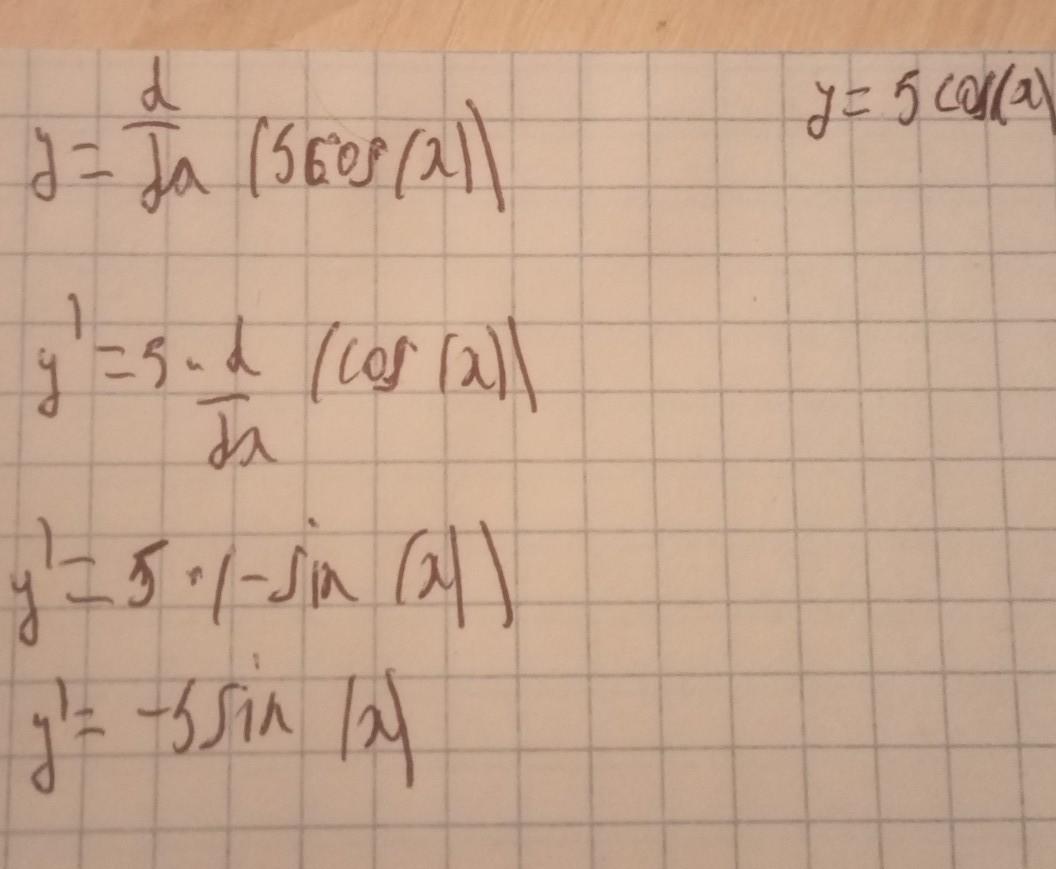 y = 5 cos(x)
y = d/dx (5cos(x))
y' = 5 · d/dx (cos(x))
y' = 5 · (-sin(x))
y' = -5sin(x)